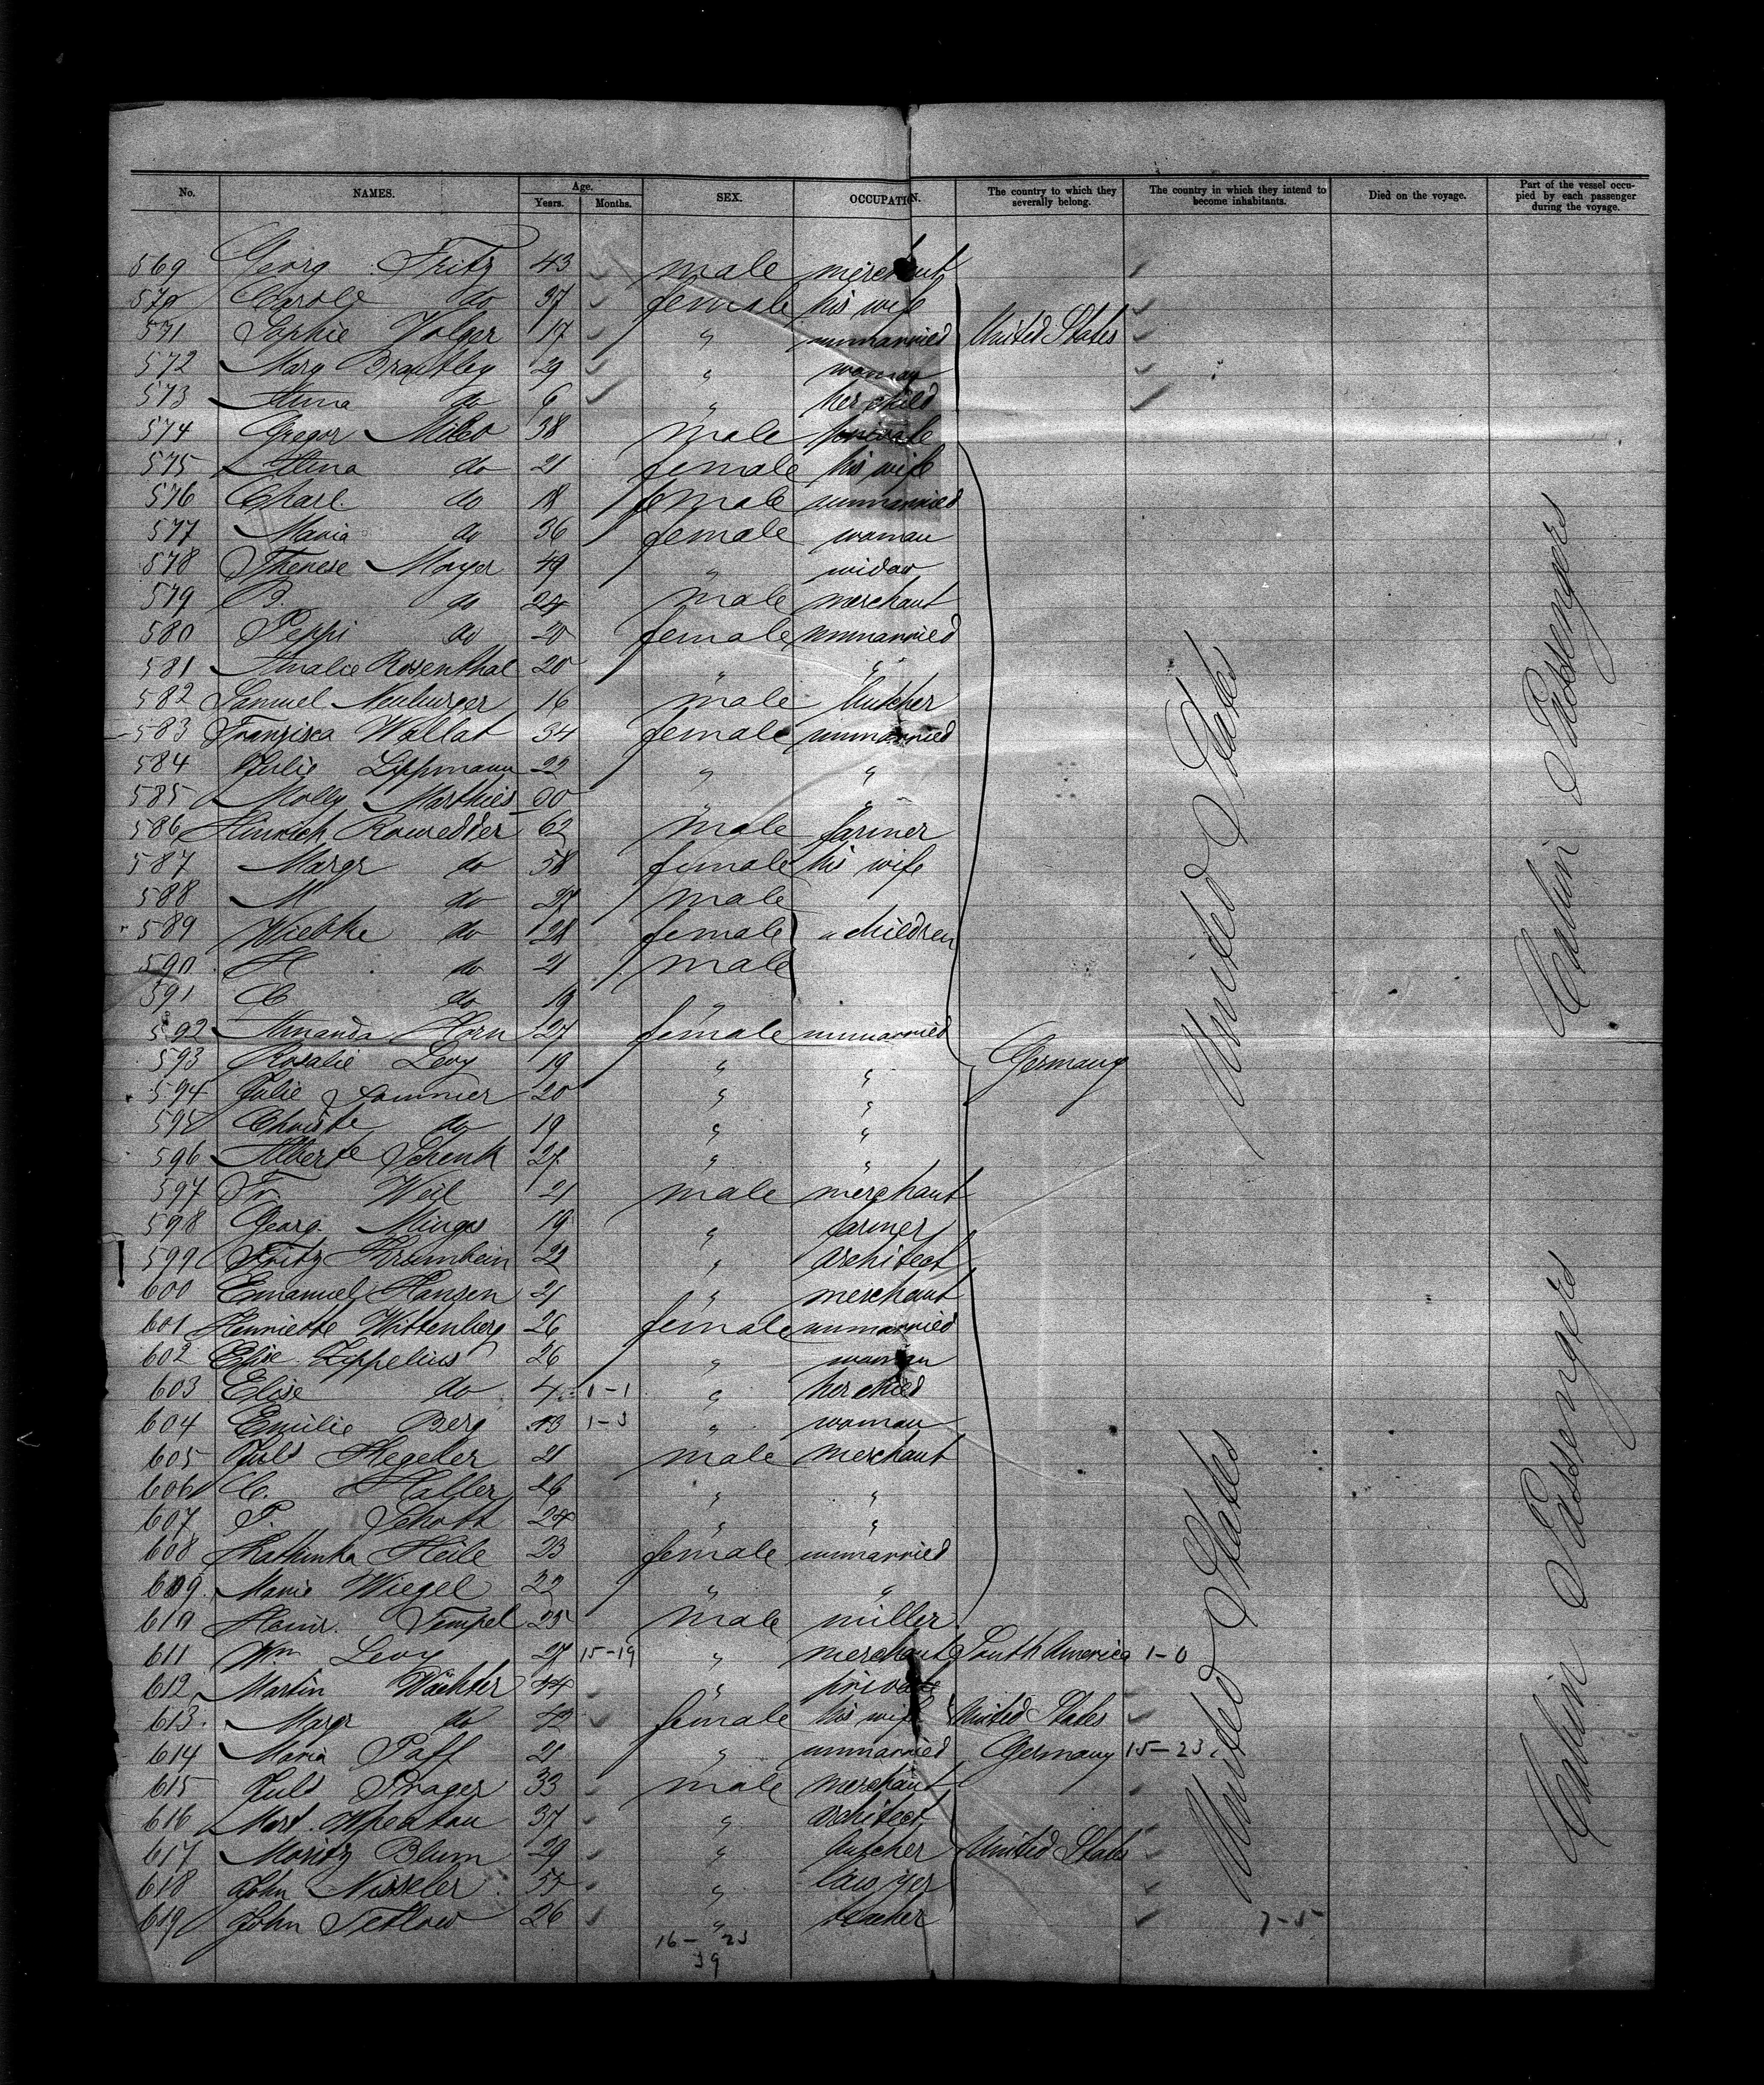 No. NAMES. Age. Years. Months. SEX. OCCUPATION. The country to which they severally belong. The country in which they intend to become inhabitants. Died on the voyage. Part of the vessel occupied by each passenger during the voyage.
569 Georg Fritz 43 male merchant
570 Carole do 37 female his wife
571 Sophie Volger 17 " unmarried United States
572 Mary Brantley 29 " woman
573 Anna do 6 " her child
574 Gregor Miles 38 male private
575 Anna do 21 female his wife
576 Charl. do 18 female unmarried
577 Maria do 36 female woman
578 Therese Mayer 49 " widow
579 B. do 24 male merchant
580 Peppi do 20 female unmarried
581 Amalie Rosenthal 20 " "
582 Samuel Neuburger 16 male butcher
583 Franzisca Wollat 34 female unmarried
584 Julie Lippmann 22 " "
585 Molly Marthies " "
586 Hinrich Rowedder 62 male farmer
587 Margr do 58 female his wife
588 M do 27 male
589 Wiebke do 28 female " children
590 H do 21 male
591 C do 19 "
592 Amanda Horn 27 female unmarried
593 Rosalie Levy 19 " " Germany
594 Julie Sommer 20 " "
595 Christe do 19 " "
596 Alberte Schenk 27 " "
597 Fr. Weil 21 male merchant
598 Georg Minges 19 " farmer
599 Fritz Krumbein 22 " architect
600 Emanuel Hansen 21 " merchant
601 Henriette Wittenberg 26 female unmarried
602 Elise Zippelius 26 " woman
603 Elise do 4 1-1 " her child
604 Emilie Berg 1-3 " woman
605 Juls Hegeler 21 male merchant
606 C. Haller 26 " "
607 P. Schott 24 " "
608 Kathinka Heile 23 female unmarried
609 Marie Wiegel 22 " "
610 Heinr. Tempel 25 male miller
611 Wm Levy 27 15-19 " merchant South America 1-0
612 Martin Wächter 44 " private
613 Margr do 42 female his wife United States
614 Maria Paff 21 " unmarried Germany 15-23
615 Juls Prager 33 male merchant
616 Mort. Wheaton 37 " architect
617 Moritz Blum 29 " butcher United States
618 John Nisseler " lawyer
619 John Tetlow 26 " teacher
7-5
16- 23
39
United States
United States
Cabin Passengers
Cabin Passengers